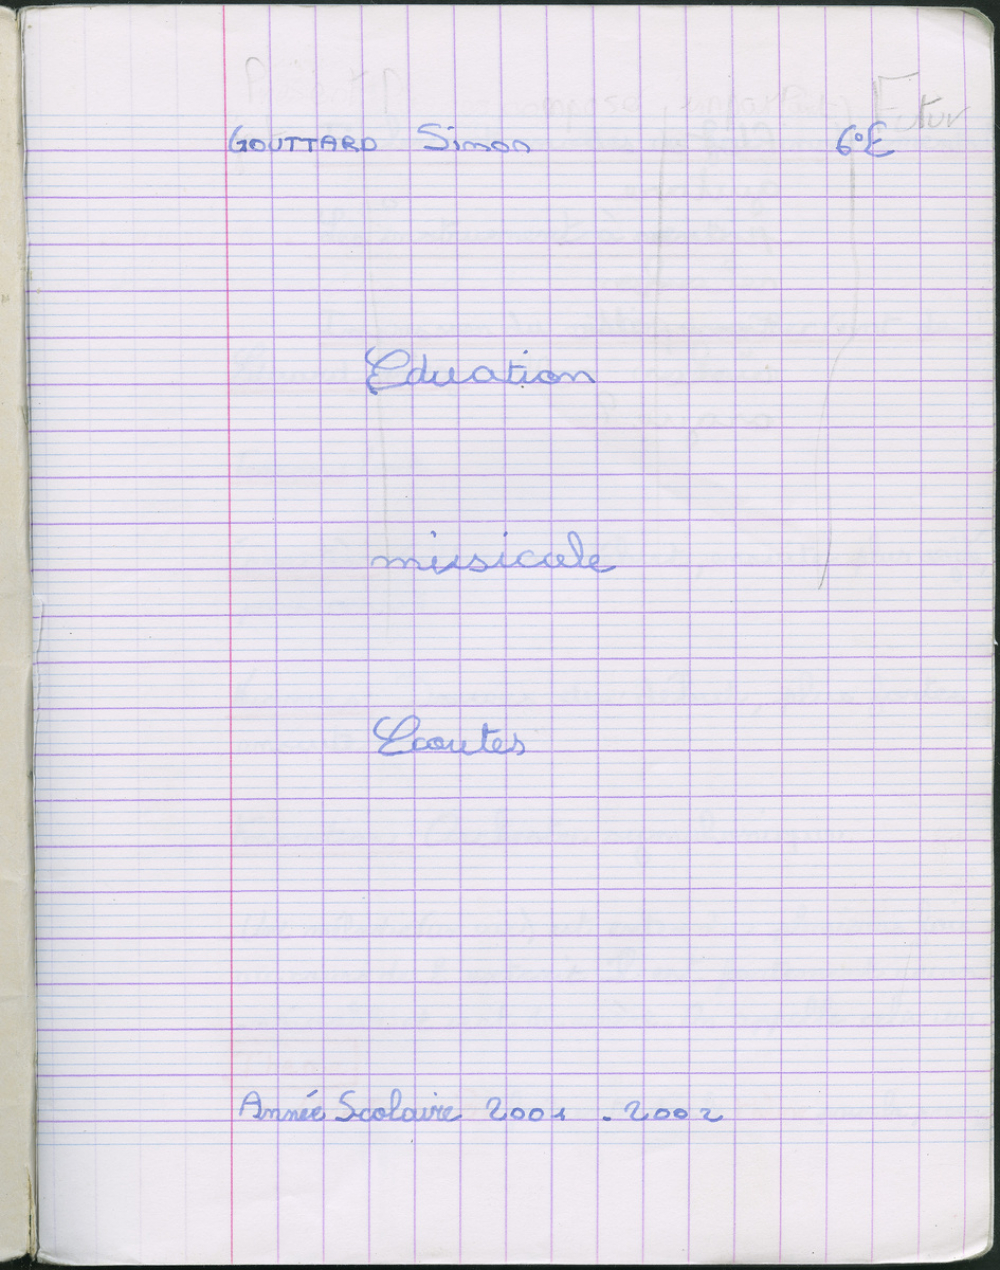 GOUTTARD Simon 6°E
Eduation
musicale
Ecoutes
Année Scolaire 2001 - 2002